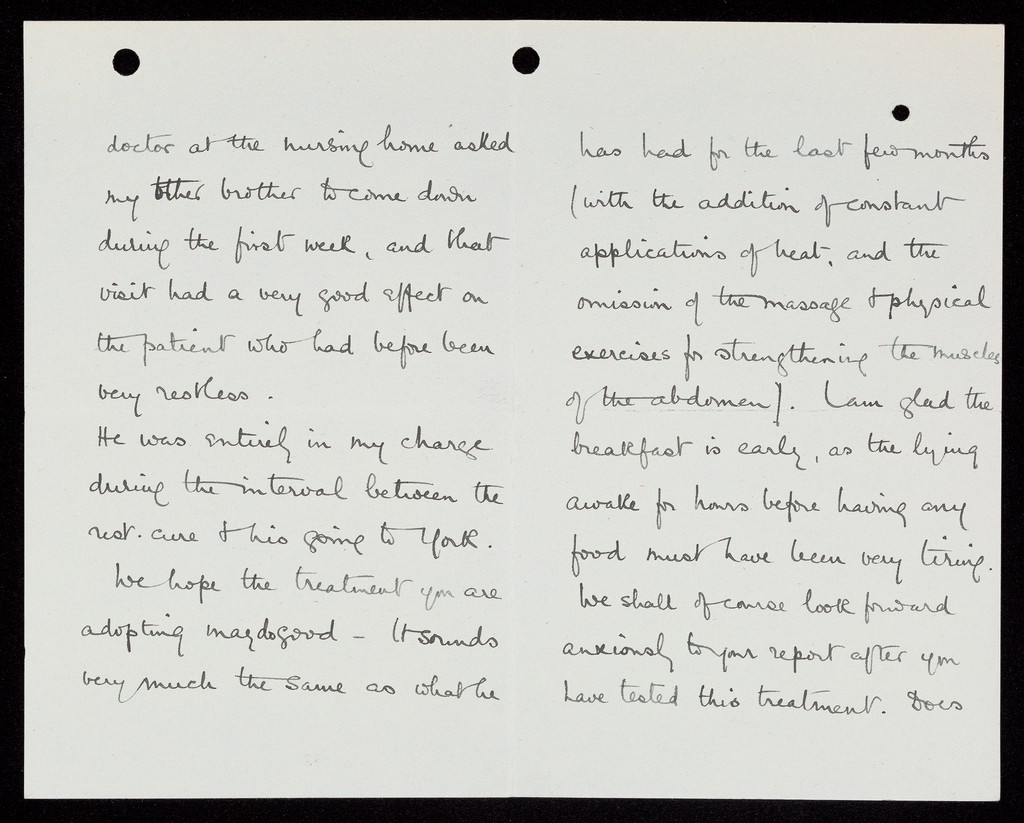 doctor at the nursing home asked
my other brother to come down
during the first week, and that
visit had a very good effect on
the patient who had before been
very restless.
He was entirely in my charge
during the interval between the
rest-cure & his going to York.
We hope the treatment you are
adopting may do good – It sounds
very much the same as what he
has had for the last few months
(with the addition of constant
applications of heat, and the
omission of the massage & physical
exercises for strengthening the muscles
of the abdomen). I am glad the
breakfast is early, as the lying
awake for hours before having any
food must have been very tiring.
We shall of course look forward
anxiously to your report after you
have tested this treatment. Does